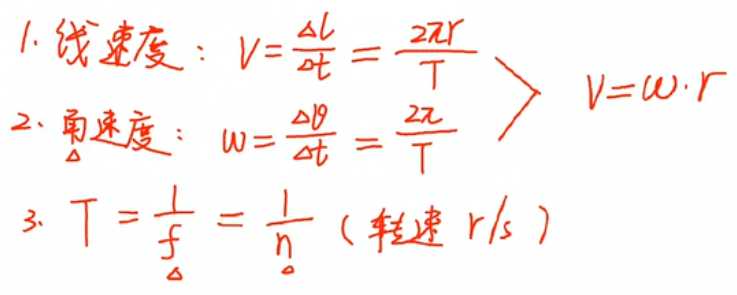 1. 线速度: V = Δl/Δt = 2πr/T
V = ω·r
2. 角速度: ω = Δθ/Δt = 2π/T
3. T = 1/f = 1/n (转速 r/s)